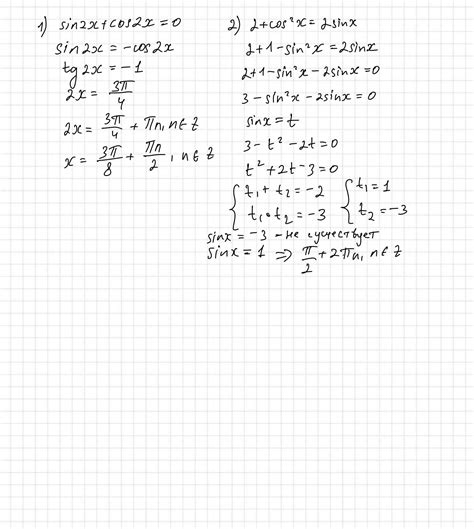 1) sin2x + cos2x = 0
sin2x = -cos2x
tg2x = -1
2x = 3π/4
2x = 3π/4 + πn, n ∈ Z
x = 3π/8 + πn/2, n ∈ Z
2) 2 + cos²x = 2sinx
2 + 1 - sin²x = 2sinx
2 + 1 - sin²x - 2sinx = 0
3 - sin²x - 2sinx = 0
sinx = t
3 - t² - 2t = 0
t² + 2t - 3 = 0
{ t₁ + t₂ = -2 { t₁ = 1
t₁ • t₂ = -3 t₂ = -3
sinx = -3 - не существует
sinx = 1 ⇒ π/2 + 2πn, n ∈ Z